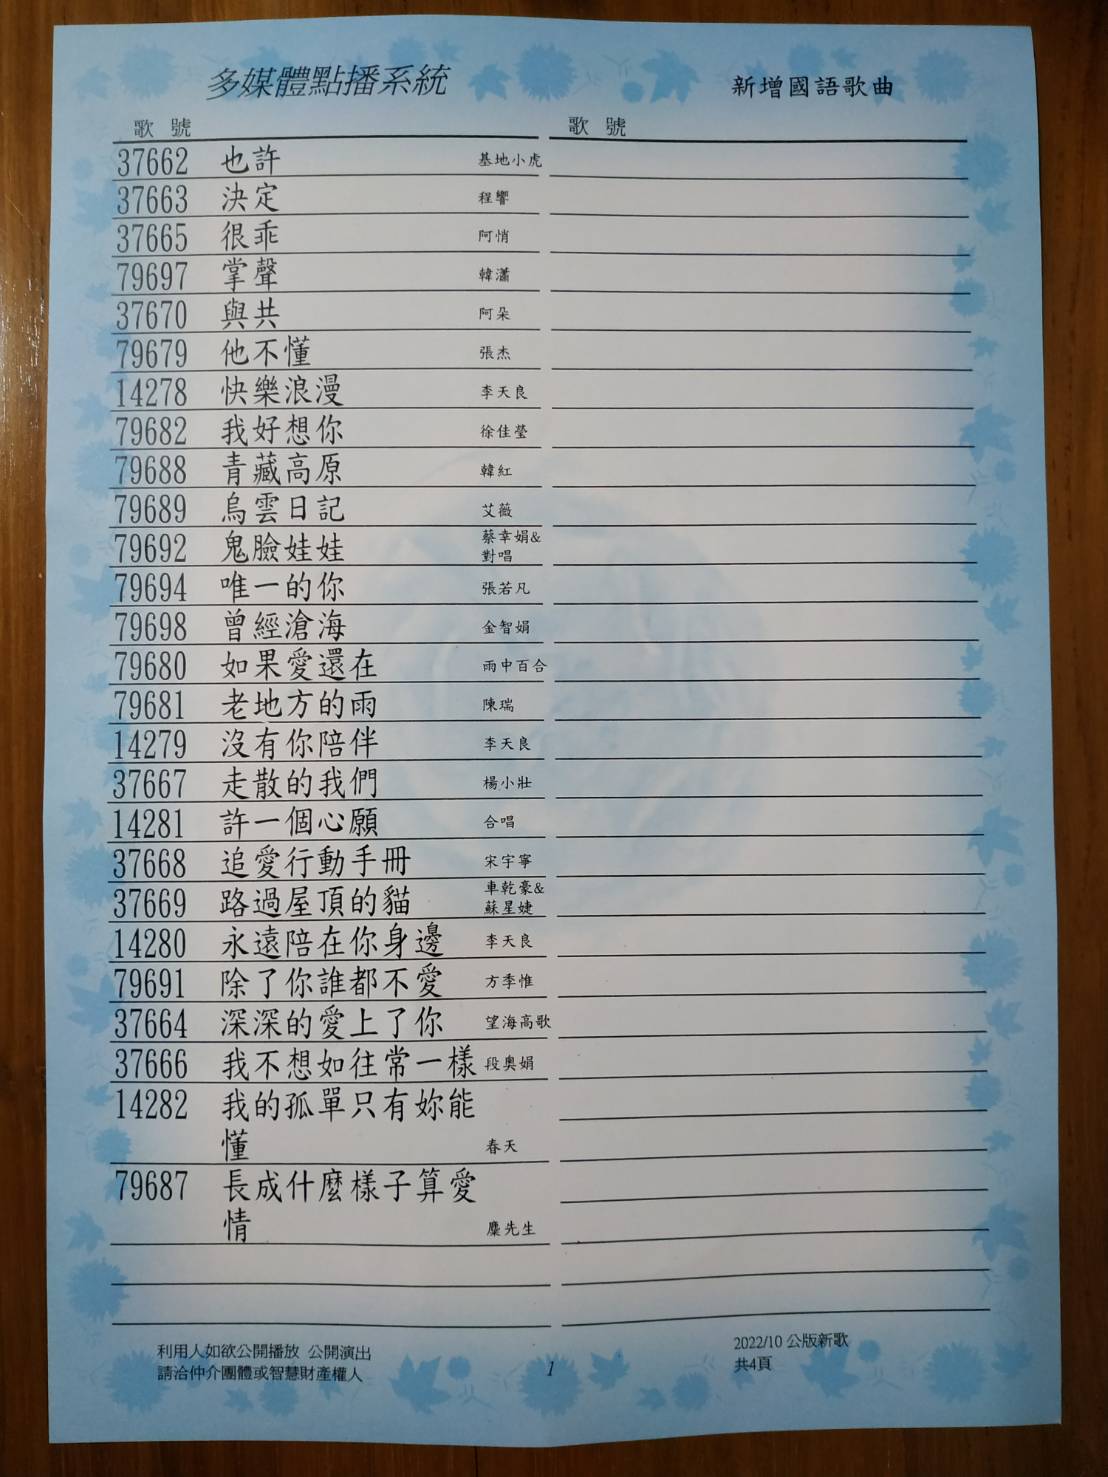 多媒體點播系統
新增國語歌曲
歌 號
歌 號
37662 也許 基地小虎
37663 決定 程響
37665 很乖 阿悄
79697 掌聲 韓瀟
37670 與共 阿朵
79679 他不懂 張杰
14278 快樂浪漫 李天良
79682 我好想你 徐佳瑩
79688 青藏高原 韓紅
79689 烏雲日記 艾薇
79692 鬼臉娃娃 蔡幸娟&
對唱
79694 唯一的你 張若凡
79698 曾經滄海 金智娟
79680 如果愛還在 雨中百合
79681 老地方的雨 陳瑞
14279 沒有你陪伴 李天良
37667 走散的我們 楊小壯
14281 許一個心願 合唱
37668 追愛行動手冊 宋宇寧
37669 路過屋頂的貓 車乾豪&
蘇星婕
14280 永遠陪在你身邊 李天良
79691 除了你誰都不愛 方季惟
37664 深深的愛上了你 望海高歌
37666 我不想如往常一樣 段奧娟
14282 我的孤單只有妳能
懂 春天
79687 長成什麼樣子算愛
情 麋先生
利用人如欲公開播放 公開演出
請洽仲介團體或智慧財產權人
1
2022/10 公版新歌
共4頁